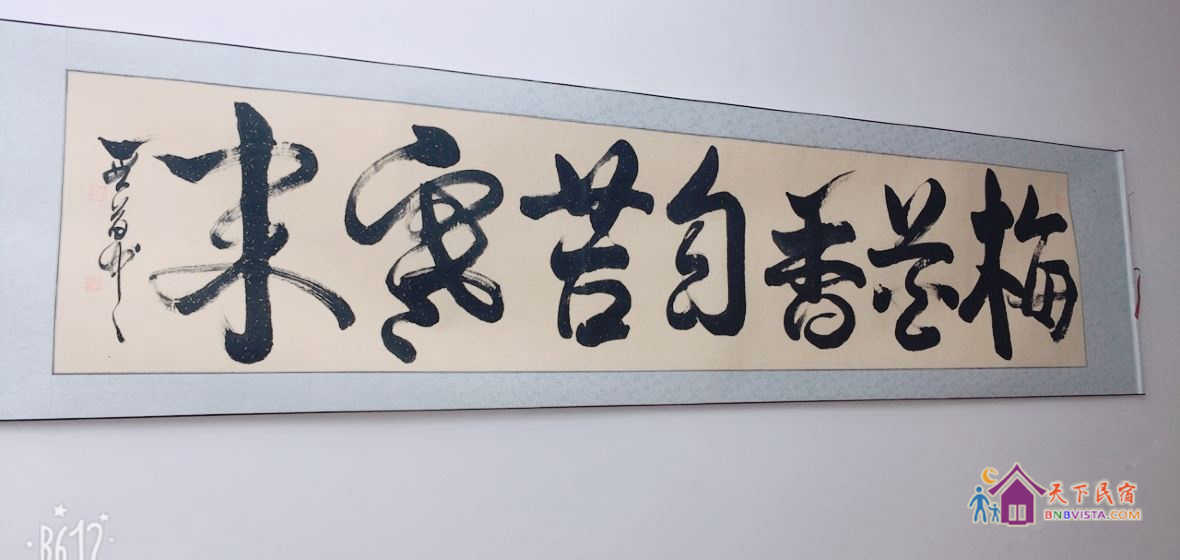 梅花香自苦寒来
天下民宿
BNBVISTA.COM
B612